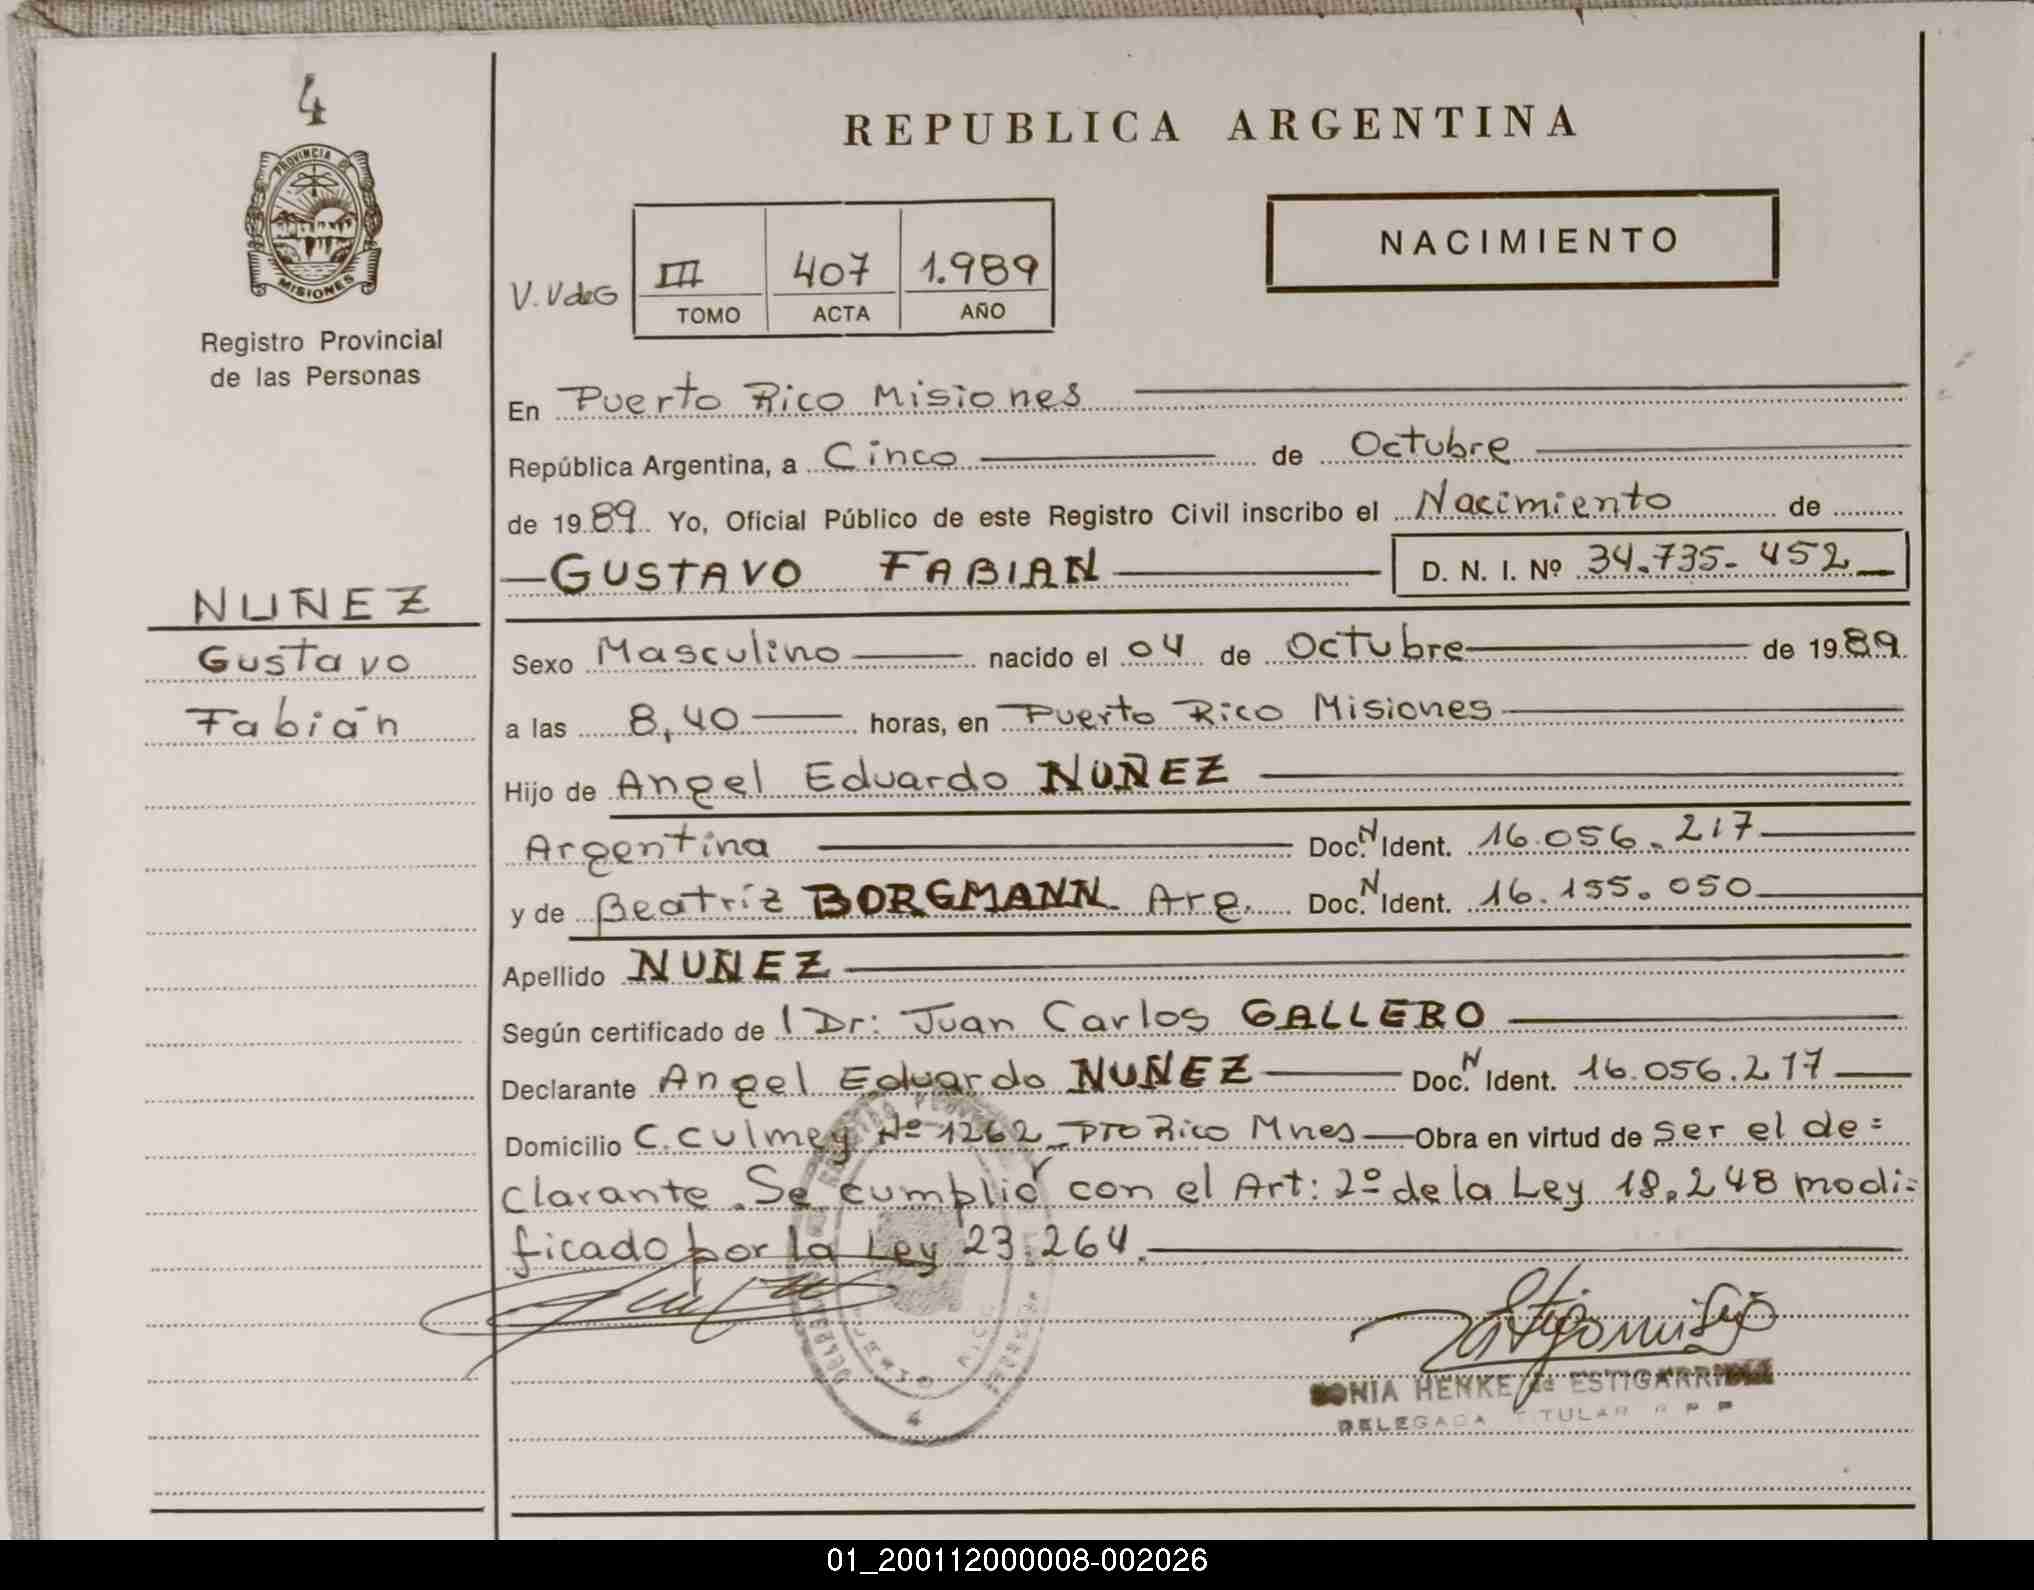 4
PROVINCIA DE
MISIONES
Registro Provincial
de las Personas
NUÑEZ
Gustavo
Fabián
REPUBLICA ARGENTINA
NACIMIENTO
V. V de G
III 407 1.989
TOMO ACTA AÑO
En Puerto Rico Misiones
República Argentina, a Cinco de Octubre
de 1989 Yo, Oficial Público de este Registro Civil inscribo el Nacimiento de
GUSTAVO FABIAN D. N. I. Nº 34.735.452
Sexo Masculino nacido el 04 de Octubre de 1989
a las 8,40 horas, en Puerto Rico Misiones
Hijo de Angel Eduardo NUÑEZ
Argentina Doc. N Ident. 16.056.217
y de Beatríz BORGMANN Arg. Doc. N Ident. 16.155.050
Apellido NUÑEZ
Según certificado de l Dr: Juan Carlos GALLERO
Declarante Angel Eduardo NUÑEZ Doc. N Ident. 16.056.217
Domicilio C. Culmey Nº 1262 Pto Rico Mnes Obra en virtud de ser el de=
clarante. Se cumplió con el Art: 2º de la Ley 18.248 modi=
ficado por la Ley 23.264.
SONIA HENKE de ESTIGARRIBIA
DELEGADA TITULAR R P P
PUERTO RICO
4
01_200112000008-002026